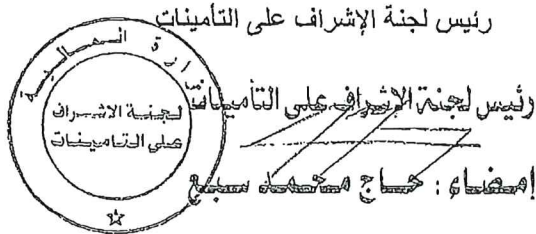 رئيس لجنة الإشراف على التأمينات
وزارة المالية
لجنة الاشراف
على التامينات
رئيس لجنة الإشراف على التأمينات
إمضاء : حاج محمد سبع